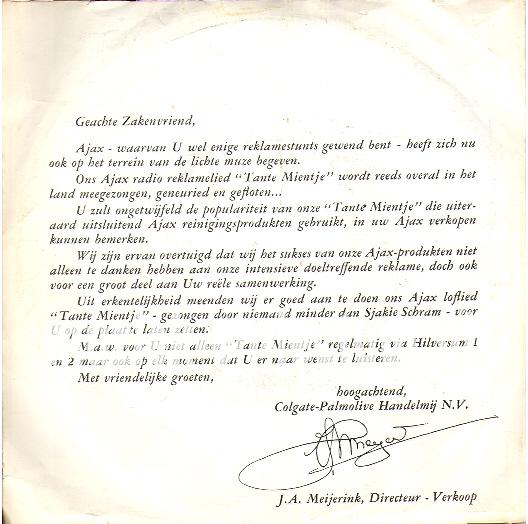 Geachte Zakenvriend,
Ajax - waarvan U wel enige reklamestunts gewend bent - heeft zich nu
ook op het terrein van de lichte muze begeven.
Ons Ajax radio reklamelied "Tante Mientje" wordt reeds overal in het
land meegezongen, geneuried en gefloten...
U zult ongetwijfeld de populariteit van onze "Tante Mientje" die uiter-
aard uitsluitend Ajax reinigingsprodukten gebruikt, in uw Ajax verkopen
kunnen bemerken.
Wij zijn ervan overtuigd dat wij het sukses van onze Ajax-produkten niet
alleen te danken hebben aan onze intensieve doeltreffende reklame, doch ook
voor een groot deel aan Uw reële samenwerking.
Uit erkentelijkheid meenden wij er goed aan te doen ons Ajax loflied
"Tante Mientje" - gezongen door niemand minder dan Sjakie Schram - voor
U op de plaat te laten zetten.
M.a.w. voor U niet alleen "Tante Mientje" regelmatig via Hilversum 1
en 2 maar ook op elk moment dat U er naar wenst te luisteren.
Met vriendelijke groeten,
hoogachtend,
Colgate-Palmolive Handelmij N.V.
J.A. Meijerink, Directeur - Verkoop